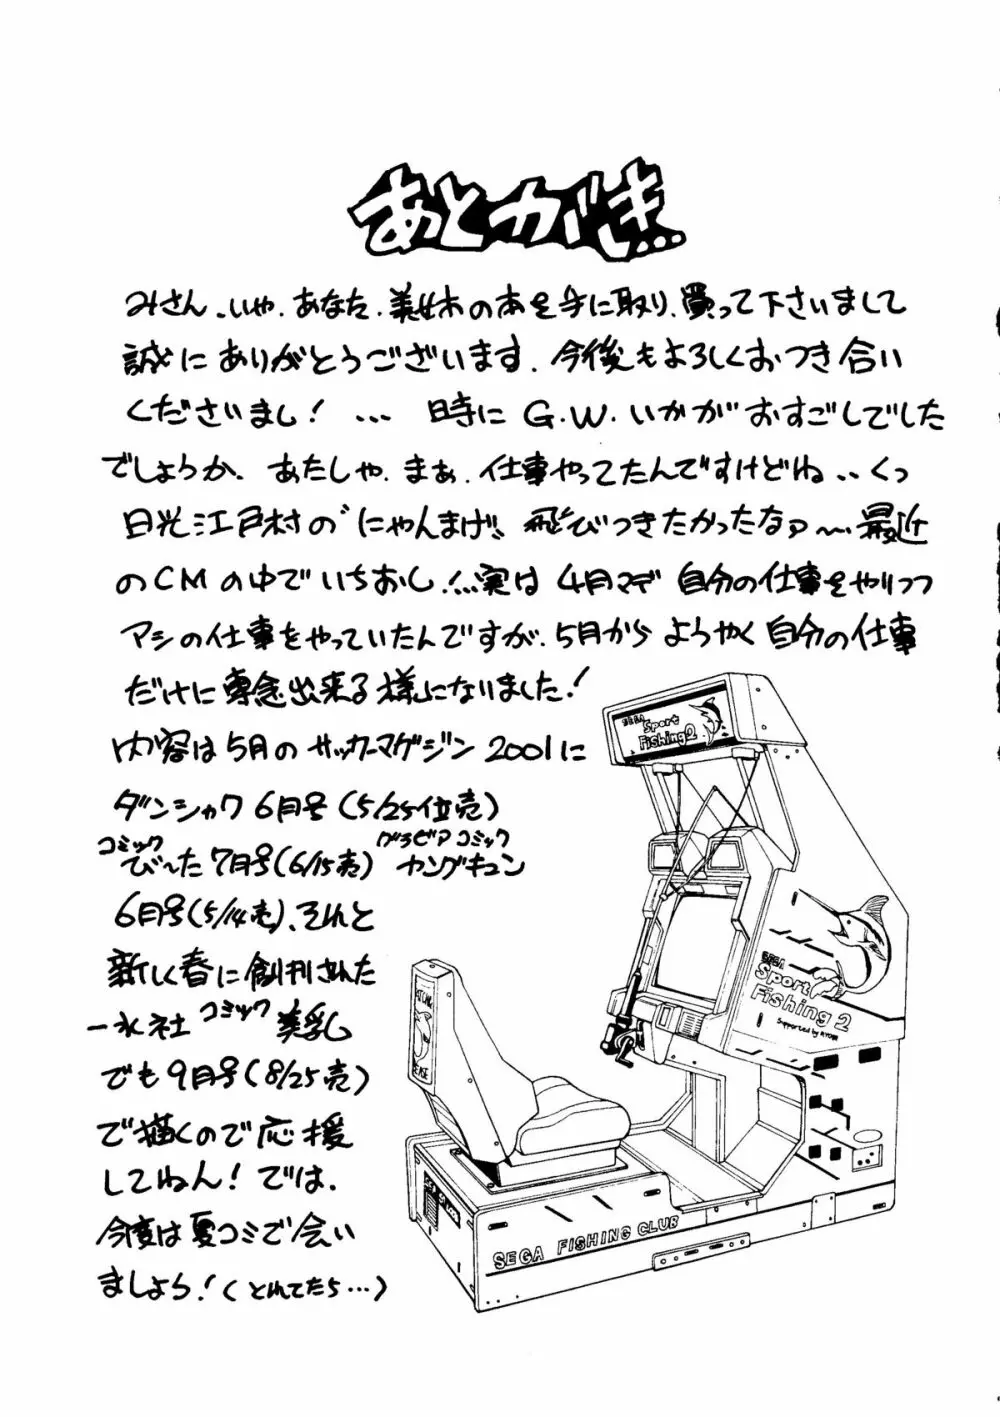 あとがき…
みさん、いや、あなた、美女木の本を手に取り、買って下さいまして
誠にありがとうございます。今後もよろしくおつき合い
くださいまし! … 時に G.W. いかがおすごしでした
でしょうか、あたしゃ、まぁ、仕事やってたんですけどね、、くっ
日光江戸村の"にゃんまげ"、飛びつきたかったなァ〜、最近
のCMの中でいちおし!…実は4月マデ自分の仕事をやりつつ
アシの仕事をやっていたんですが、5月からようやく自分の仕事
だけに専念出来る様になりました!
内容は5月のサッカーマガジン2001に
ダンシャク6月号(5/25位売)
コミック
び〜た7月号(6/15売)
グラビアコミック
ヤングキュン
6月号(5/14売)、それと
新しく春に創刊された
一水社 コミック 美乳
でも9月号(8/25売)
で描くので応援
してねん! では、
今度は夏コミで会い
ましょう! (とれてたら…)
SEGA
Sport
Fishing 2
SEGA
Sport
Fishing 2
Supported by
SEGA FISHING CLUB